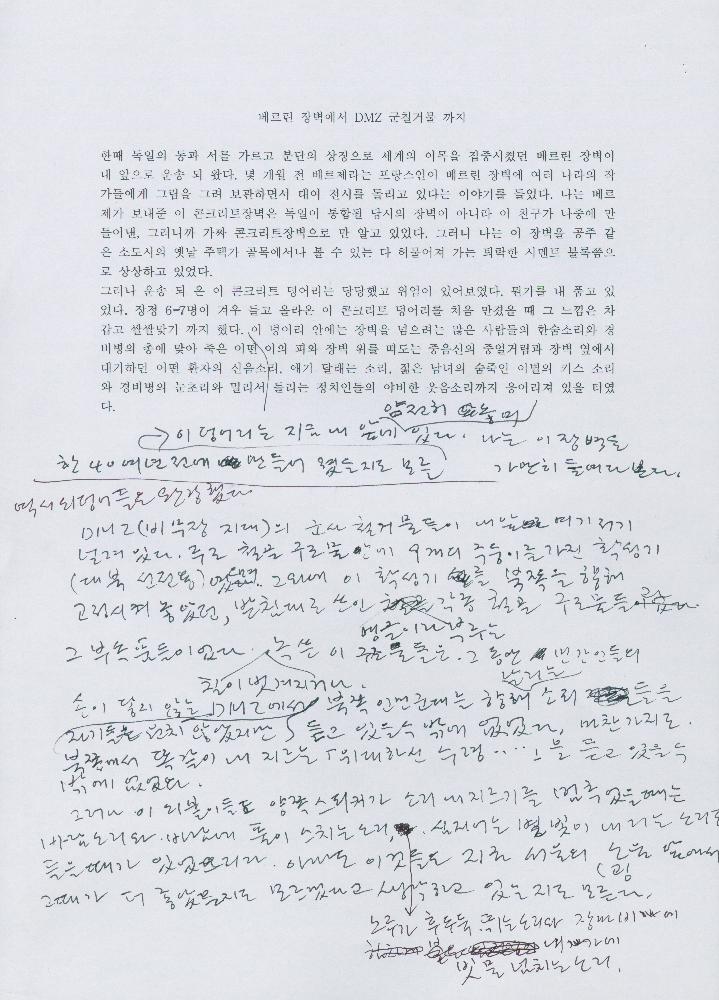 베르린 장벽에서 DMZ 군철거물 까지
한때 독일의 동과 서를 가르고 분단의 상징으로 세계의 이목을 집중시켰던 베르린 장벽이
내 앞으로 운송 되 왔다. 몇 개월 전 베르제라는 프랑스인이 베르린 장벽에 여러 나라의 작
가들에게 그림을 그려 보관하면서 대여 전시를 돌리고 있다는 이야기를 들었다. 나는 베르
제가 보내준 이 콘크리트장벽은 독일이 통합될 당시의 장벽이 아니라 이 친구가 나중에 만
들어낸, 그러니까 가짜 콘크리트장벽으로 만 알고 있었다. 그러니 나는 이 장벽을 공주 같
은 소도시의 옛날 주택가 골목에서나 볼 수 있는 다 허물어져 가는 퇴락한 시멘트 블록쯤으
로 상상하고 있었다.
그러나 운송 되 온 이 콘크리트 덩어리는 당당했고 위엄이 있어보였다. 뭔가를 내 품고 있
었다. 장정 6-7명이 겨우 들고 올라온 이 콘크리트 덩어리를 처음 만졌을 때 그 느낌은 차
갑고 쌀쌀맞기 까지 했다. 이 덩어리 안에는 장벽을 넘으려는 많은 사람들의 한숨소리와 경
비병의 총에 맞아 죽은 어떤 이의 피와 장벽 위를 떠도는 중음신의 중얼거림과 장벽 옆에서
대기하던 어떤 환자의 신음소리, 애기 달래는 소리, 젊은 남녀의 숨죽인 이별의 키스 소리
와 경비병의 눈초리와 멀리서 들리는 정치인들의 야비한 웃음소리까지 응어리져 있을 터였
다.
얌전히
이 덩어리는 지금 내 앞에 있다. 나는 이 장벽을
한 40여년 전에 만들어 졌을지도 모를 가만히 들여다 본다.
역시 이 덩어들은
DMZ(비무장 지대)의 군사 철거물들이 내 앞 여기 저기
널려 있다. 주로 철골 구조물 안에 9개의 주둥이를 가진 확성기
(대북 선전용) 그 외에 이 확성기를 북쪽을 향해
고정시켜 놓았던, 받침대로 쓰인 각종 철골 구조물들
그 부속품들이었다. 녹쓴 이 구조물들은 그 동안 민간인들의
칠이 벗겨지거나
손이 닿지 않는 DMZ에서 북쪽 인민군대를 향해 소리 들을
지르는 않았지만 듣고 있을 수 밖에 없었다, 마찬가지로
북쪽에서 똑같이 내 지르는 「위대하신 수령 ……」을 듣고 있을 수
밖에 없었다.
그러나 이 양쪽 스피커가 소리 내지르기를 멈추었을 때는
바람소리와 바람에 풀이 스치는 소리, 심지어는 별빛이 내리는 소리도
들을 때가 있었으리라. 아마도 이것들도 지금 서울의 앞에서
그때가 더 좋았을지도 모르겠다고 생각하고 있는지도 모른다.
노루가 후두둑 뛰는 소리와 장마 비에
냇가에
빗물 넘치는 소리.